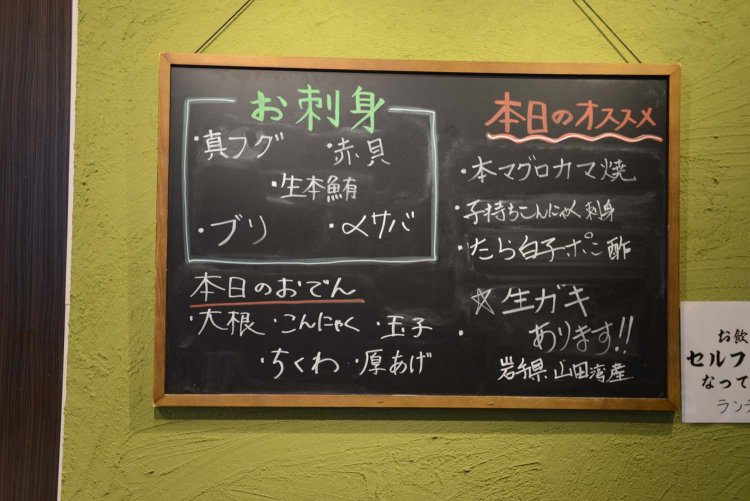 お刺身
・真フグ ・赤貝
・生本鮪
・ブリ ・〆サバ
本日のおでん
・大根 ・こんにゃく ・玉子
・ちくわ ・厚あげ
本日のオススメ
・本マグロカマ焼
・子持ちこんにゃく刺身
・たら白子ポン酢
☆生ガキ
あります!!
岩手県 山田湾産
お飲
セルフ
なって
ランチ